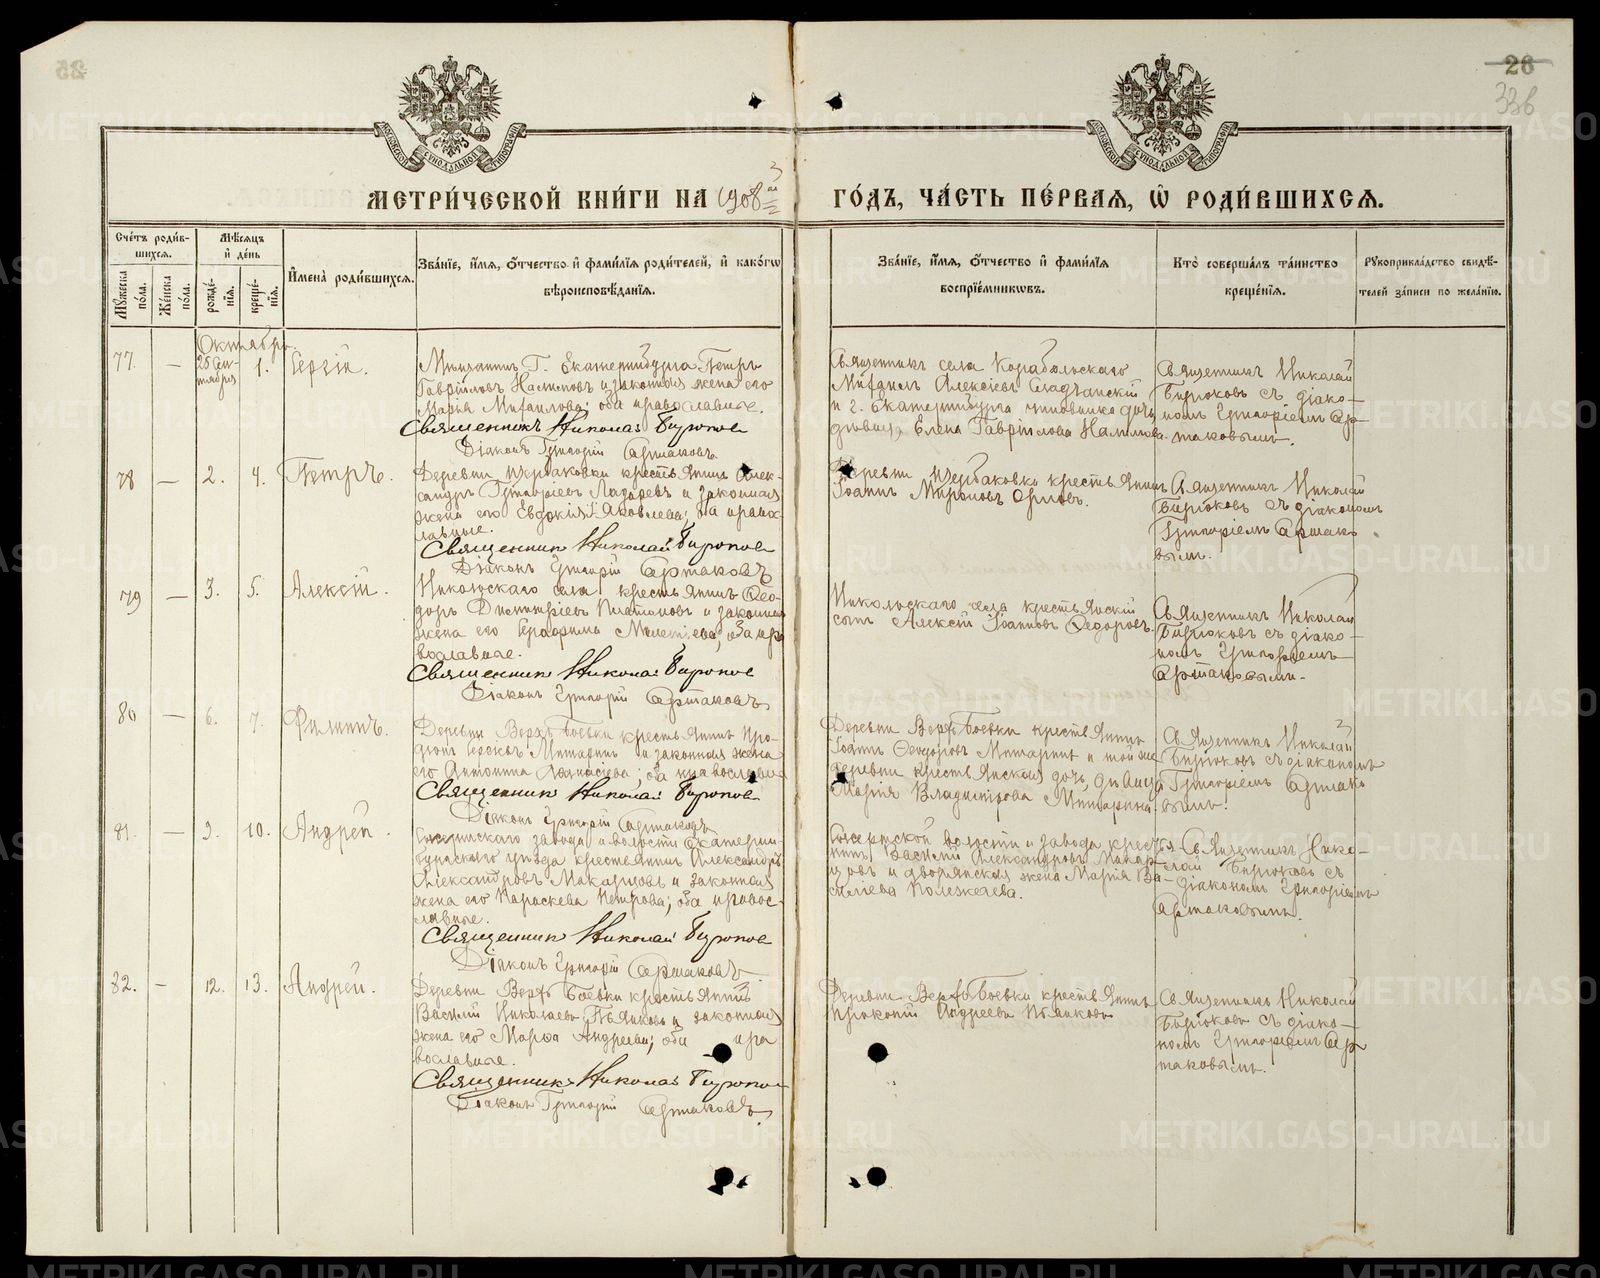 26
МЕТРИ́ЧЕСКОЙ КНИ́ГИ НА 1908
ГО́ДЪ, ЧА́СТЬ ПЕ́РВАѦ, Ѡ҆ РОДИ́ВШИХСѦ.
Сче́тъ роди́в-
шихсѧ.
Мꙋ́жеска по́ла.
Же́нска по́ла.
Мѣ́сѧцъ и҆ де́нь
рожде́-нїѧ.
креще́-нїѧ.
И҆мена̀ роди́вшихсѧ.
Зва́нїе, и҆́мѧ, ѻ҆́тчество и҆ фами́лїѧ роди́телей, и҆ како́гѡ
вѣроисповѣ́данїѧ.
Зва́нїе, и҆́мѧ, ѻ҆́тчество и҆ фами́лїѧ
воспрїе́мникѡвъ.
Кто̀ соверша́лъ та́инство
креще́нїѧ.
Рꙋкоприкла́дство свидѣ́-
телей за́писи по жела́нїю.
Октябрь.
77. — 25 Сен-тября 1. Сергій.
Мѣщанинъ Г. Екатеринбурга Петръ
Гавріиловъ Налимовъ и законная жена его
Марія Михаилова; оба православные.
Священникъ Николай Бирюковъ
Діаконъ Григорій Артаковъ
Священникъ села Карабольскаго
Михаилъ Алексіевъ
и г. Екатеринбурга чиновника дочь
дѣвица Елена Гавріилова Налимова.
Священникъ Николай
Бирюковъ съ діако-
номъ Григоріемъ Ар-
таковымъ.
78 — 2. 4. Петръ.
Деревни Щербаковки крестьянинъ Алек-
сандръ Григоріевъ Лазаревъ и законная
жена его Евдокія Яковлева; оба право-
славные.
Священник Николай Бирюков
Діаконъ Григорій Артаковъ
Деревни Щербаковки крестьянинъ
Іоаннъ Мироновъ Орловъ.
Священникъ Николай
Бирюковъ съ діакономъ
Григоріемъ Артако
вымъ.
79 — 3. 5. Алексій.
Никольскаго села крестьянинъ Ѳео-
доръ Димитріевъ Платоновъ и законная
жена его Серафима Мелетіева; оба пра
вославные.
Священник Николай Бирюков
Діаконъ Григорій Артаковъ
Никольскаго села крестьянскій
сынъ Алексій Іоанновъ Ѳедоровъ.
Священникъ Николай
Бирюковъ съ діако-
номъ Григоріемъ
Артаковыми.
80 — 6. 7. Филиппъ.
Деревни Верхъ Боевки крестьянинъ
и законная жена
его Антонина Аѳанасіева; оба православные
Священник Николай Бирюков
Діаконъ Григорій Артаковъ
Деревни Верхъ Боевки крестьянинъ
Іоаннъ Ѳеодоровъ и той же
деревни крестьянская дочь, дѣвица
Марія Владимірова
Священникъ Николай
Бирюковъ съ діакономъ
Григоріемъ Артако
вымъ.
81. — 9. 10. Андрей.
Сысертскаго завода и волости Екатерин-
бургскаго уѣзда крестьянинъ Александръ
Александровъ Макаровъ и законная
жена его Параскева Петрова; оба правос-
лавные.
Священник Николай Бирюков
Діаконъ Григорій Артаковъ
Сысертской волости и завода кресть-
Василій Александровъ
и дворянская жена Марія Ва-
силіева Полежаева.
Священникъ Нико-
лай Бирюковъ съ
діакономъ Григоріемъ
Артаковымъ.
82. — 12. 13. Андрей.
Деревни Верхъ Боевки крестьянинъ
Василій Николаевъ Пьянковъ и законная
жена его Марѳа Андреева; оба пра
вославные.
Священникъ Николай Бирюков
Діаконъ Григорій Артаковъ
Деревни Верхъ Боевки крестьянинъ
Прокопій Андреевъ Пьянковъ
Священникъ Николай
Бирюковъ съ діако-
номъ Григоріемъ Ар
таковымъ.
METRIKI.GASO-URAL.RU